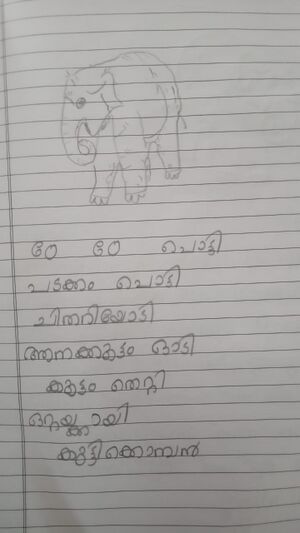 ഠേ ഠേ പൊട്ടി
പടക്കം പൊട്ടി
ചിതറിയോടി
ആനക്കൂട്ടം ഓടി
കൂട്ടം തെറ്റി
ഒറ്റയ്ക്കായി
കുട്ടിക്കൊമ്പൻ